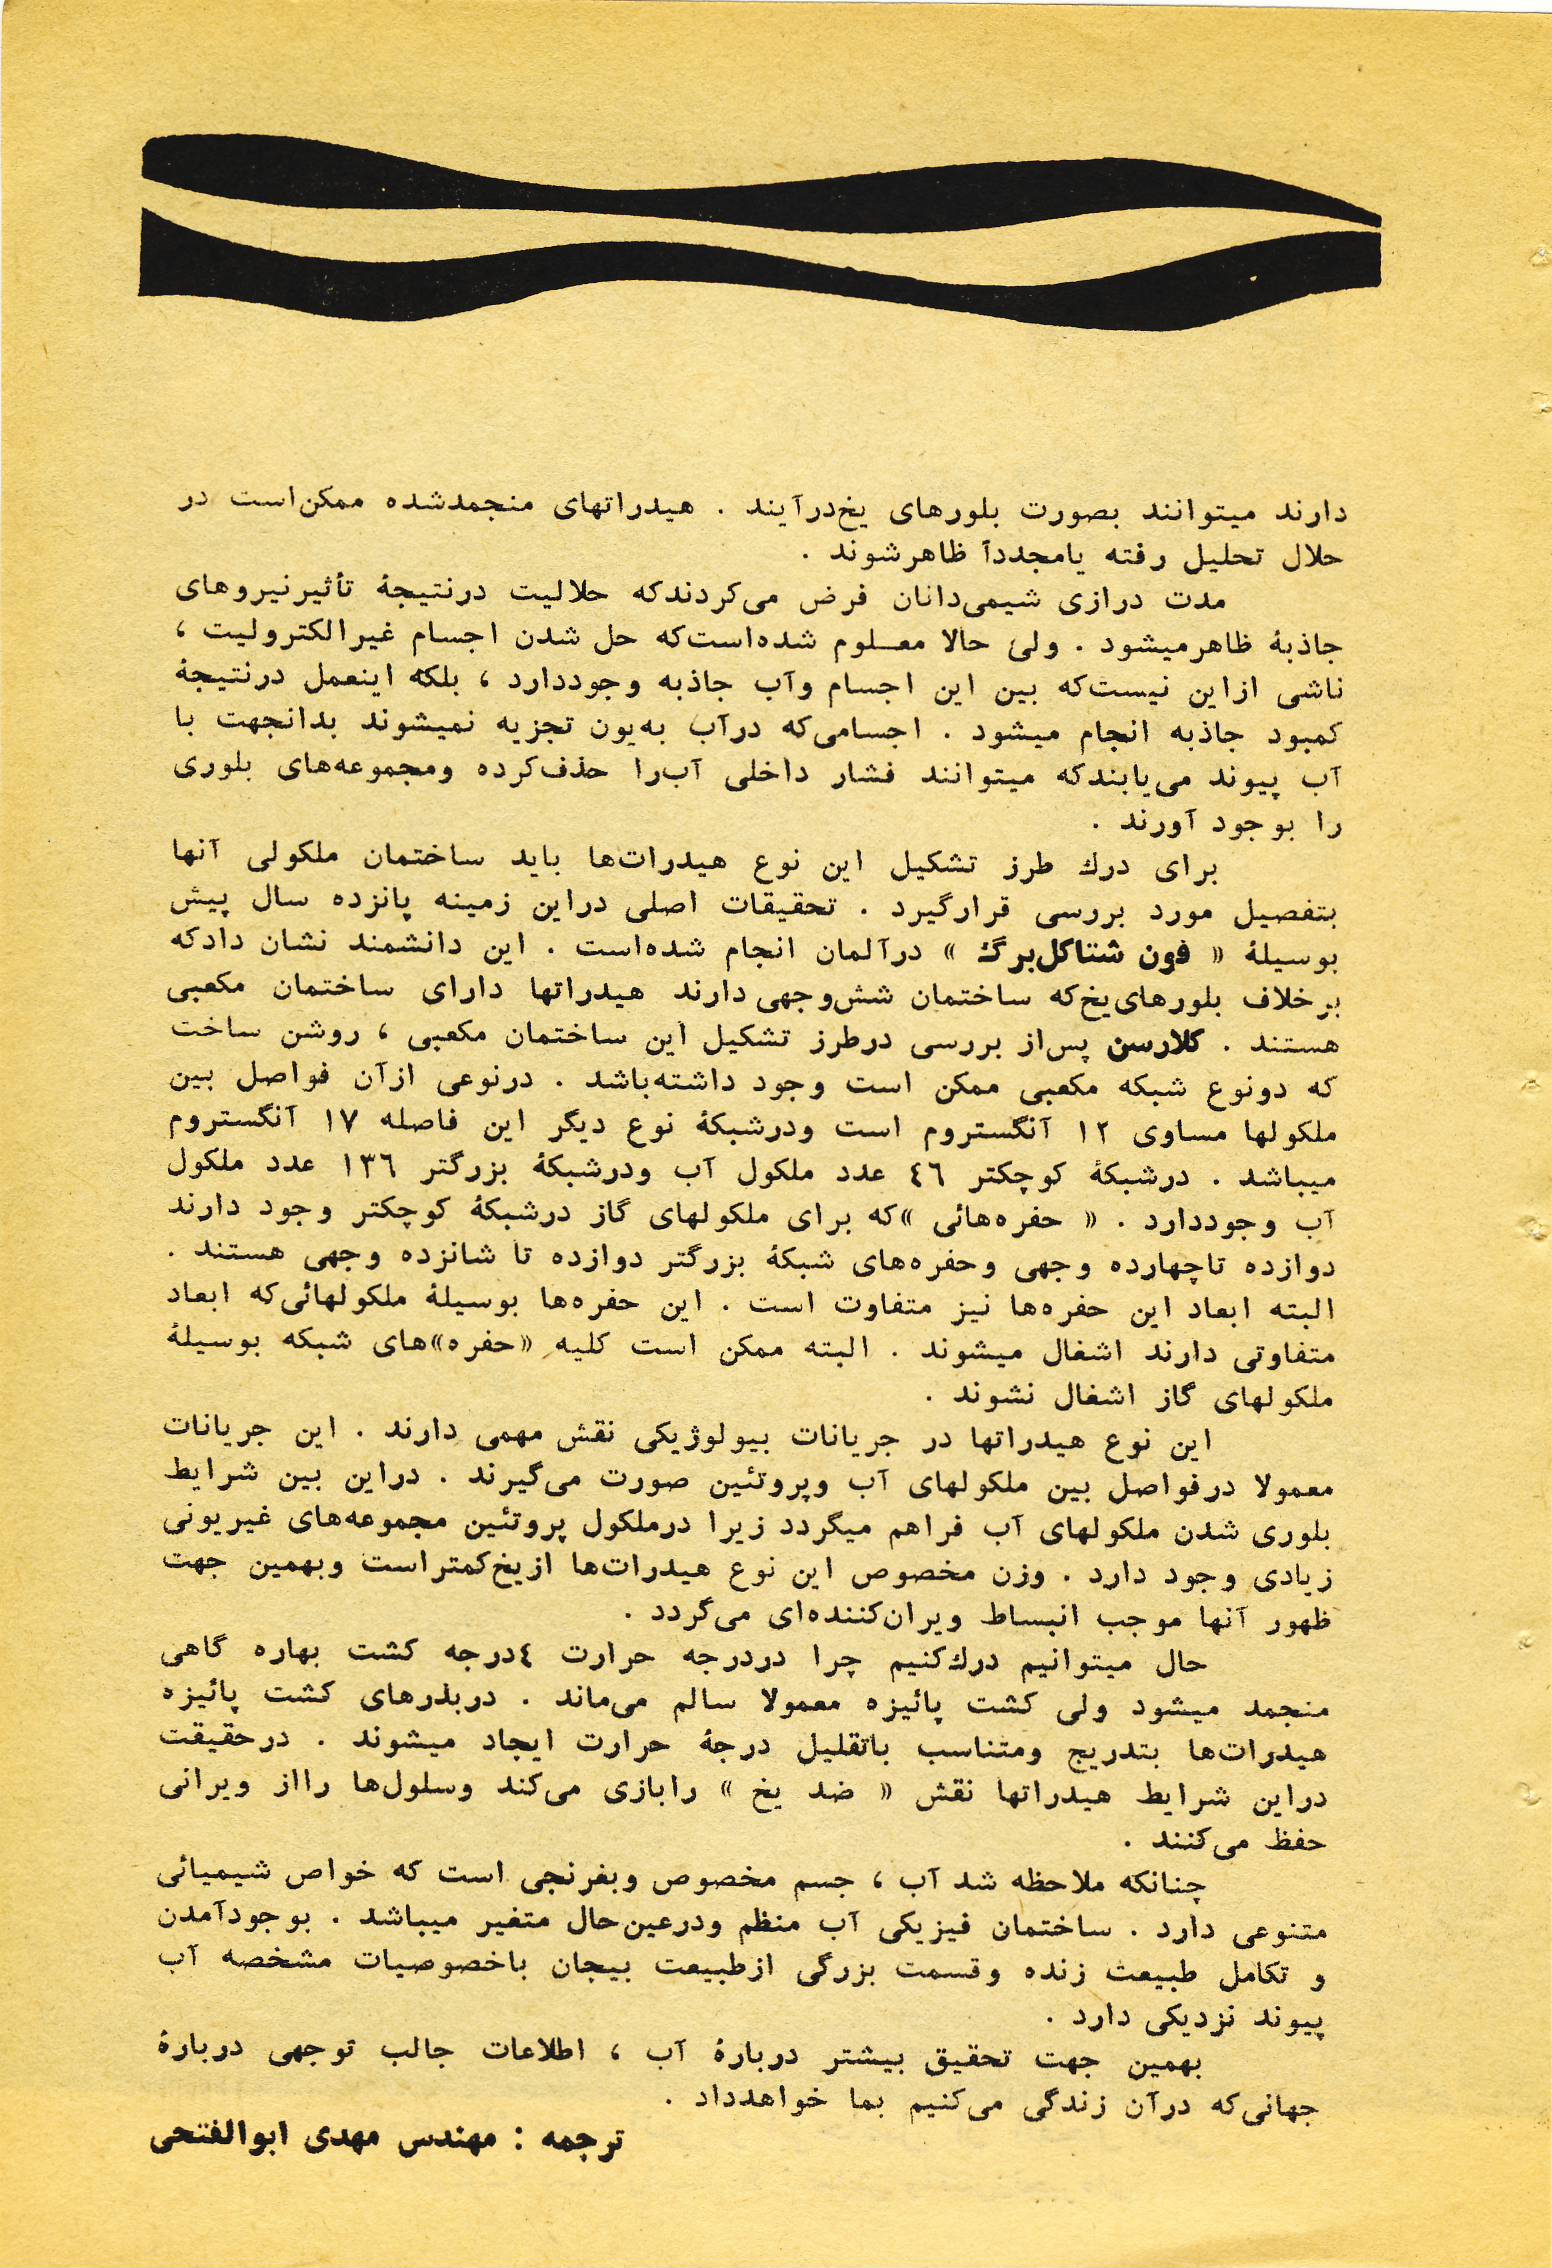 دارند میتوانند بصورت بلورهای یخ‌درآیند . هیدراتهای منجمدشده ممکن‌است در
حلال تحلیل رفته یامجدداً ظاهرشوند .
مدت درازی شیمی‌دانان فرض می‌کردندکه حلالیت درنتیجهٔ تأثیرنیروهای
جاذبهٔ ظاهرمیشود . ولی حالا معـلوم شده‌است‌که حل شدن اجسام غیرالکترولیت ،
ناشی ازاین نیست‌که بین این اجسام وآب جاذبه وجوددارد ، بلکه اینعمل درنتیجهٔ
کمبود جاذبه انجام میشود . اجسامی‌که درآب به‌یون تجزیه نمیشوند بدانجهت با
آب پیوند می‌یابندکه میتوانند فشار داخلی آب‌را حذف‌کرده ومجموعه‌های بلوری
را بوجود آورند .
برای درك طرز تشکیل این نوع هیدرات‌ها باید ساختمان ملکولی آنها
بتفصیل مورد بررسی قرارگیرد . تحقیقات اصلی دراین زمینه پانزده سال پیش
بوسیلهٔ « فون شتاکل‌برگ » درآلمان انجام شده‌است . این دانشمند نشان دادکه
برخلاف بلورهای‌یخ‌که ساختمان شش‌وجهی دارند هیدراتها دارای ساختمان مکعبی
هستند . کلارسن پس‌از بررسی درطرز تشکیل این ساختمان مکعبی ، روشن ساخت
که دونوع شبکه مکعبی ممکن است وجود داشته‌باشد . درنوعی ازآن فواصل بین
ملکولها مساوی ۱۲ آنگستروم است ودرشبکهٔ نوع دیگر این فاصله ۱۷ آنگستروم
میباشد . درشبکهٔ کوچکتر ٤٦ عدد ملکول آب ودرشبکهٔ بزرگتر ۱۳٦ عدد ملکول
آب وجوددارد . « حفره‌هائی »که برای ملکولهای گاز درشبکهٔ کوچکتر وجود دارند
دوازده تاچهارده وجهی وحفره‌های شبکهٔ بزرگتر دوازده تا شانزده وجهی هستند .
البته ابعاد این حفره‌ها نیز متفاوت است . این حفره‌ها بوسیلهٔ ملکولهائی‌که ابعاد
متفاوتی دارند اشغال میشوند . البته ممکن است کلیه «حفره»های شبکه بوسیلهٔ
ملکولهای گاز اشغال نشوند .
این نوع هیدراتها در جریانات بیولوژیکی نقش مهمی دارند . این جریانات
معمولا درفواصل بین ملکولهای آب وپروتئین صورت می‌گیرند . دراین بین شرایط
بلوری شدن ملکولهای آب فراهم میگردد زیرا درملکول پروتئین مجموعه‌های غیریونی
زیادی وجود دارد . وزن مخصوص این نوع هیدرات‌ها ازیخ‌کمتراست وبهمین جهت
ظهور آنها موجب انبساط ویران‌کننده‌ای می‌گردد .
حال میتوانیم درك‌کنیم چرا دردرجه حرارت ٤درجه کشت بهاره گاهی
منجمد میشود ولی کشت پائیزه معمولا سالم می‌ماند . دربذرهای کشت پائیزه
هیدرات‌ها بتدریج ومتناسب باتقلیل درجهٔ حرارت ایجاد میشوند . درحقیقت
دراین شرایط هیدراتها نقش « ضد یخ » رابازی می‌کند وسلول‌ها رااز ویرانی
حفظ می‌کنند .
چنانکه ملاحظه شد آب ، جسم مخصوص وبغرنجی است که خواص شیمیائی
متنوعی دارد . ساختمان فیزیکی آب منظم ودرعین‌حال متغیر میباشد . بوجودآمدن
و تکامل طبیعت زنده وقسمت بزرگی ازطبیعت بیجان باخصوصیات مشخصه آب
پیوند نزدیکی دارد .
بهمین جهت تحقیق بیشتر دربارهٔ آب ، اطلاعات جالب توجهی دربارهٔ
جهانی‌که درآن زندگی می‌کنیم بما خواهدداد .
ترجمه : مهندس مهدی ابوالفتحی